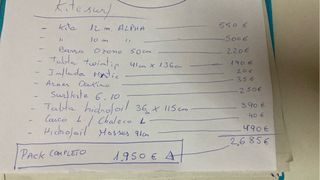 Kitesurf
- Kite 12 m. ALPHA 550 €
- " 10 m " 500 €
- Barra Ozono 50cm 220 €
- Tabla twintip 41cm x 136cm 190 €
- Inflador 20 €
- Arnes 35 €
- 6.10 250 €
- Tabla hidrofoil x 115cm 390 €
- Casco L / Chaleco L 40 €
- Hidrofoil Mosses 91cm 490 €
2,685 €
PACK COMPLETO 1,950 €